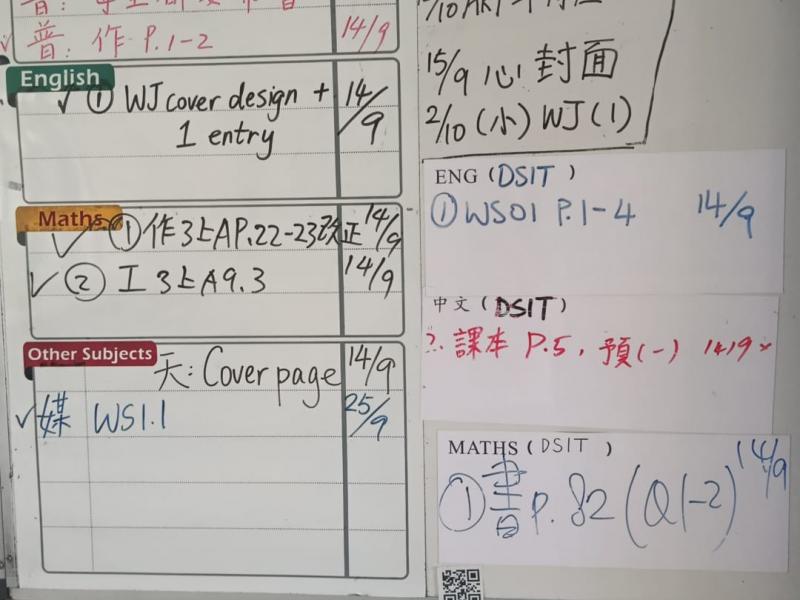 普: 作 P.1-2 14/9
English
✓ ① WJ cover design + 14/9
1 entry
Maths
✓ ① 作3上A P.22-23改正 14/9
✓ ② 工 3上A9.3 14/9
Other Subjects
天: Cover page 14/9
✓ 媒 WS1.1 25/9
15/9 心 封面
2/10 (小) WJ (1)
ENG (DSIT)
① WS01 P.1-4 14/9
中文 (DSIT)
課本 P.5, 預(一) 14/9
MATHS (DSIT)
① 書 P.82 (Q1-2) 14/9